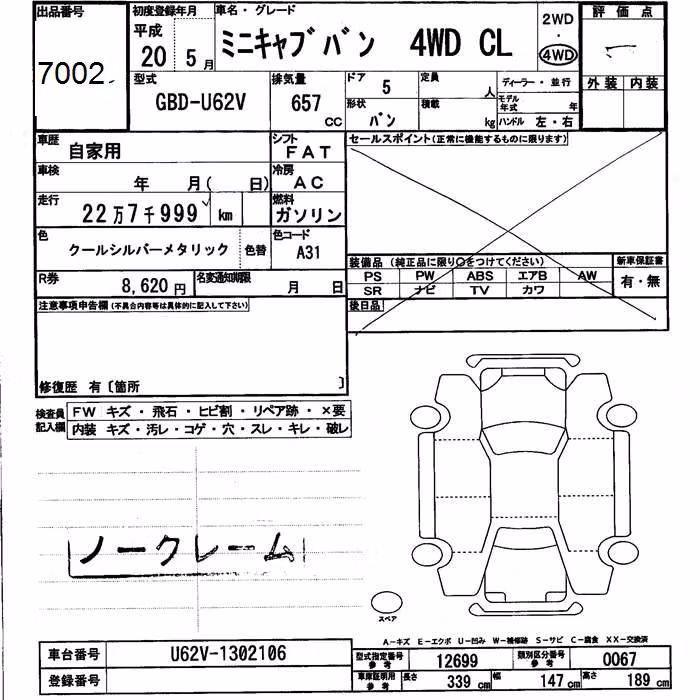 出品番号 初度登録年月 車名・グレード 2WD 評価点
7002 平成 20年 5月 ミニキャブバン 4WD CL ・ 4WD
型式 排気量 ドア 定員 ディーラー・並行 外装 内装
GBD-U62V 657 cc 5 人 モデル年式 年
形状 バン 積載 kg ハンドル 左・右
車歴 自家用 シフト FAT セールスポイント(正常に機能するものに限ります)
車検 年 月( 日) 冷房 AC
走行 22万7千999 km 燃料 ガソリン
色 クールシルバーメタリック 色替 色コード A31
装備品(純正品に限り○をつけてください) 新車保証書
R券 8,620円 名変通知期限 月 日 PS PW ABS エアB AW 有・無
SR ナビ TV カワ
注意事項申告欄(不具合内容等は具体的に記入して下さい) 後日品
修復歴 有〔箇所 〕
検査員 FW キズ・飛石・ヒビ割・リペア跡・×要
記入欄 内装 キズ・汚レ・コゲ・穴・スレ・キレ・破レ
ノークレーム
スペア
A-キズ E-エクボ U-凹み W-補修跡 S-サビ C-腐食 XX-交換済
車台番号 U62V-1302106 型式指定番号 参考 12699 類別区分番号 参考 0067
登録番号 車庫証明用 参考 長さ 339 cm 幅 147 cm 高さ 189 cm